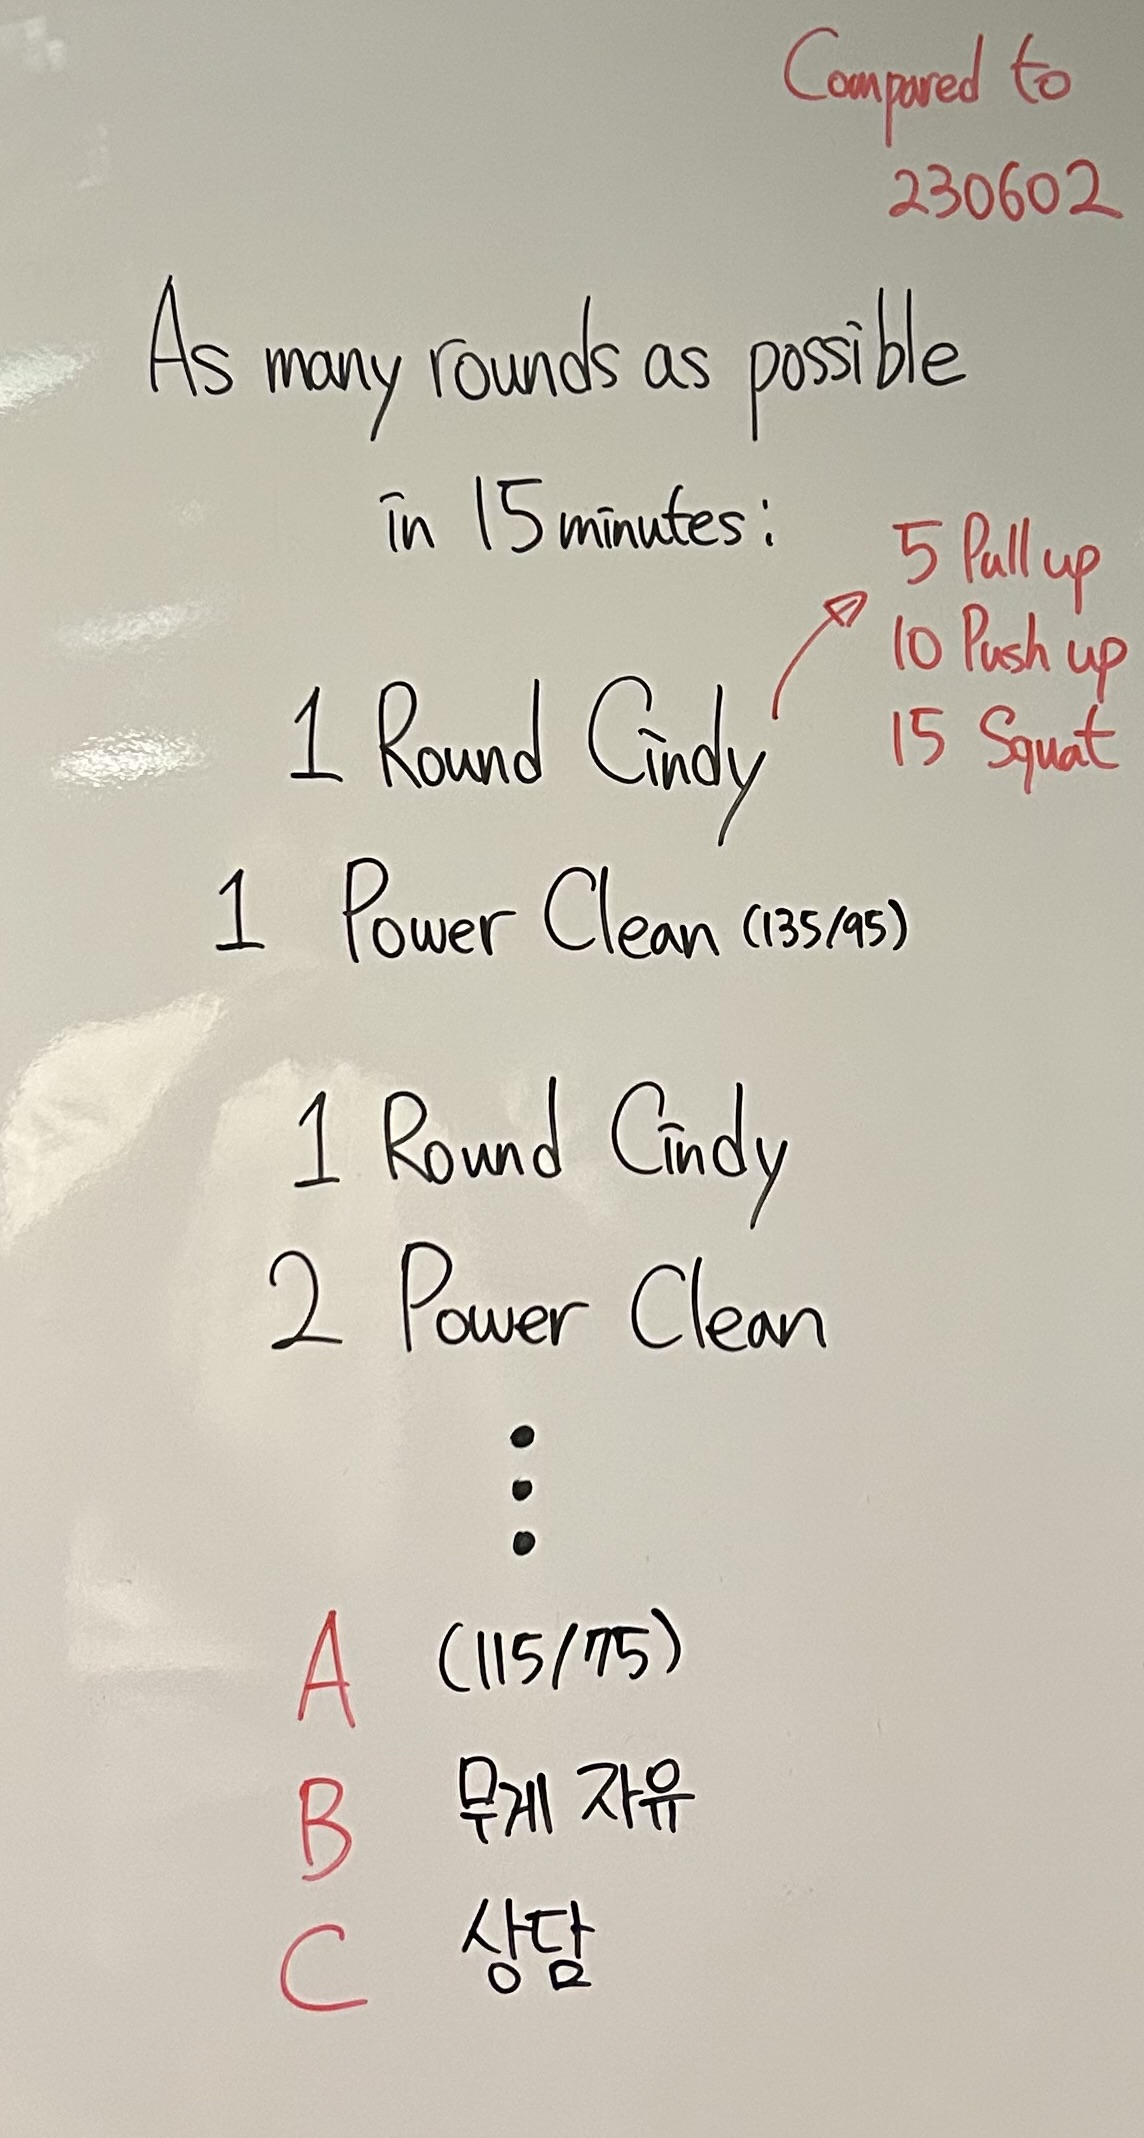 Compared to
230602
As many rounds as possible
in 15 minutes:
5 Pull up
10 Push up
15 Squat
1 Round Cindy
1 Power Clean (135/95)
1 Round Cindy
2 Power Clean
A (115/75)
B 무게 자유
C 상담